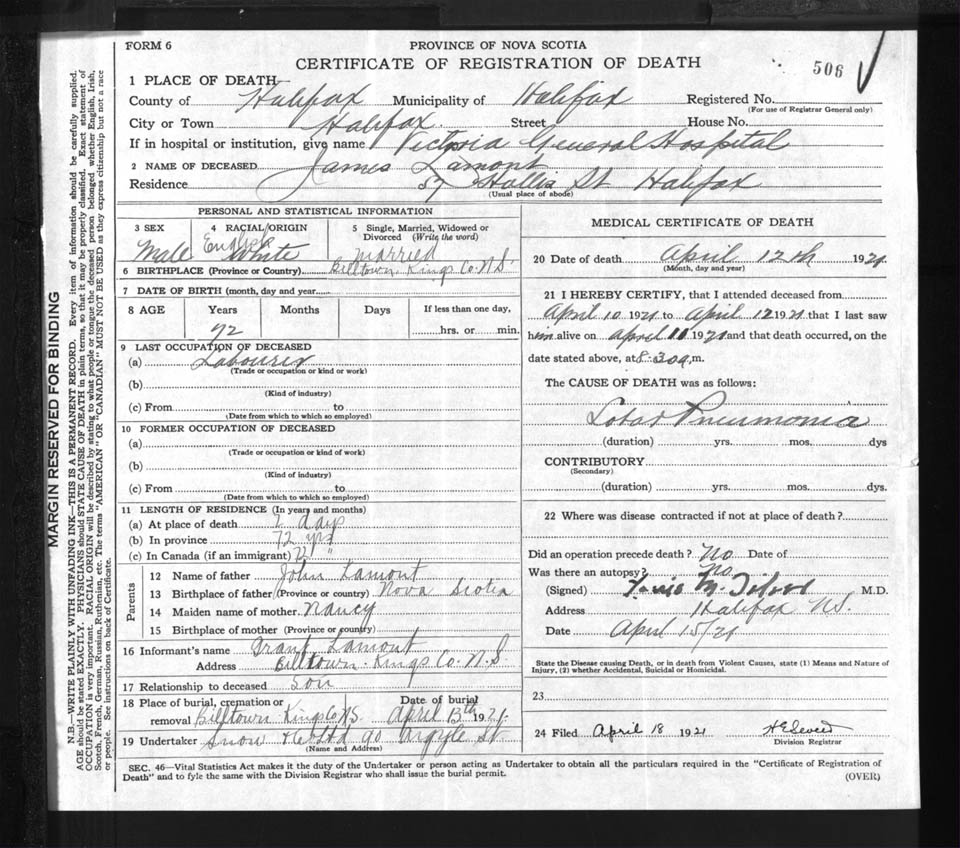 FORM 6
PROVINCE OF NOVA SCOTIA
CERTIFICATE OF REGISTRATION OF DEATH
506
1 PLACE OF DEATH—
County of Halifax Municipality of Halifax Registered No.
(For use of Registrar General only)
City or Town Halifax Street House No.
If in hospital or institution, give name Victoria General Hospital
2 NAME OF DECEASED James Lamont
Residence 57 Hollis St Halifax
(Usual place of abode)
PERSONAL AND STATISTICAL INFORMATION
3 SEX 4 RACIAL ORIGIN 5 Single, Married, Widowed or Divorced (Write the word)
Male English White Married
6 BIRTHPLACE (Province or Country) Billtown, Kings Co. N.S.
7 DATE OF BIRTH (month, day and year)
8 AGE Years Months Days If less than one day,
72 hrs. or min.
9 LAST OCCUPATION OF DECEASED
(a) Labourer
(Trade or occupation or kind or work)
(b)
(Kind of industry)
(c) From to
(Date from which to which so employed)
10 FORMER OCCUPATION OF DECEASED
(a)
(Trade or occupation or kind of work)
(b)
(Kind of industry)
(c) From to
(Date from which to which so employed)
11 LENGTH OF RESIDENCE (In years and months)
(a) At place of death 2 days
(b) In province 72 yrs
(c) In Canada (if an immigrant) 72 "
Parents
12 Name of father John Lamont
13 Birthplace of father (Province or country) Nova Scotia
14 Maiden name of mother Nancy
15 Birthplace of mother (Province or country)
16 Informant's name Grant Lamont
Address Billtown Kings Co. N.S.
17 Relationship to deceased Son
18 Place of burial, cremation or removal Billtown Kings Co NS. Date of burial April 13th 1921
19 Undertaker Snow & Co Ltd 90 Argyle St
(Name and Address)
MEDICAL CERTIFICATE OF DEATH
20 Date of death April 12th 1921
(Month, day and year)
21 I HEREBY CERTIFY, that I attended deceased from
April 10 1921 to April 12 1921 that I last saw
him alive on April 11 1921 and that death occurred, on the
date stated above, at 8.30 a.m.
The CAUSE OF DEATH was as follows:
Lobar Pneumonia
(duration) yrs. mos. dys
CONTRIBUTORY
(Secondary)
(duration) yrs. mos. dys.
22 Where was disease contracted if not at place of death?
Did an operation precede death? No Date of
Was there an autopsy? No
(Signed) M.D.
Address Halifax NS.
Date April 15/21
State the Disease causing Death, or in death from Violent Causes, state (1) Means and Nature of
Injury, (2) whether Accidental, Suicidal or Homicidal.
23
24 Filed April 18 1921
Division Registrar
SEC. 46—Vital Statistics Act makes it the duty of the Undertaker or person acting as Undertaker to obtain all the particulars required in the "Certificate of Registration of
Death" and to fyle the same with the Division Registrar who shall issue the burial permit. (OVER)
MARGIN RESERVED FOR BINDING
N.B.—WRITE PLAINLY WITH UNFADING INK—THIS IS A PERMANENT RECORD. Every item of information should be carefully supplied.
AGE should be stated EXACTLY. PHYSICIANS should STATE CAUSE OF DEATH in plain terms, so that it may be properly classified. Exact statement of
OCCUPATION is very important. RACIAL ORIGIN will be described by stating to what people or tongue the deceased person belonged whether English, Irish,
Scotch, French, German, Russian, Ruthenian, etc. The terms "AMERICAN" OR "CANADIAN" MUST NOT BE USED as they express citizenship but not a race
or people. See instructions on back of Certificate.